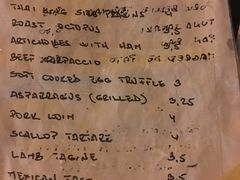 THAI KING SIZE PRAWNS
ROAST OCTOPUS
ARTICHOKES WITH HAM 3,5
BEEF CARPACCIO
SOFT COOKED EGG TRUFFLE 3
ASPARRAGUS (GRILLED) 3,25
PORK LOIN 4
SCALLOP TARTARE 4
LAMB TAGINE 3,5
MEXICAN 3,5